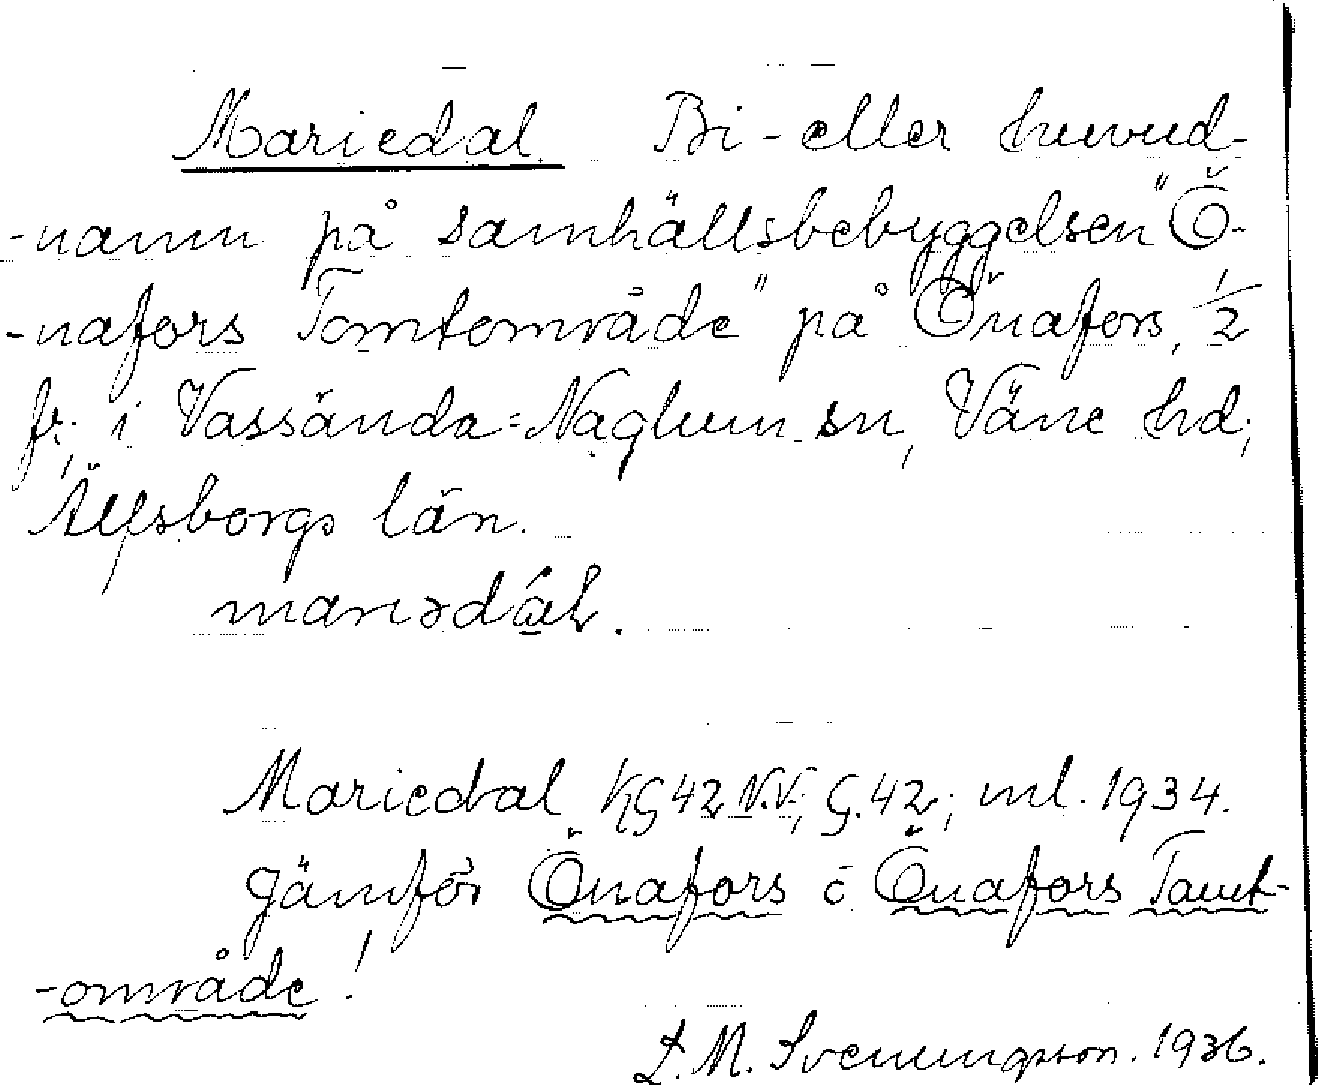 Mariedal Bi- eller huvud-
-namn på samhällsbebyggelsen "Ö-
-nafors Tomtområde" på Önafors, 1/2
fr; i Vassända=Naglum sn, Väne hd;
Älfsborgs län.
marıədáḷ.
Mariedal KG42 N.V; G.42; ml. 1934.
Jämför Önafors o Önafors Tomt-
-område!
L. M. Svenungsson. 1936.